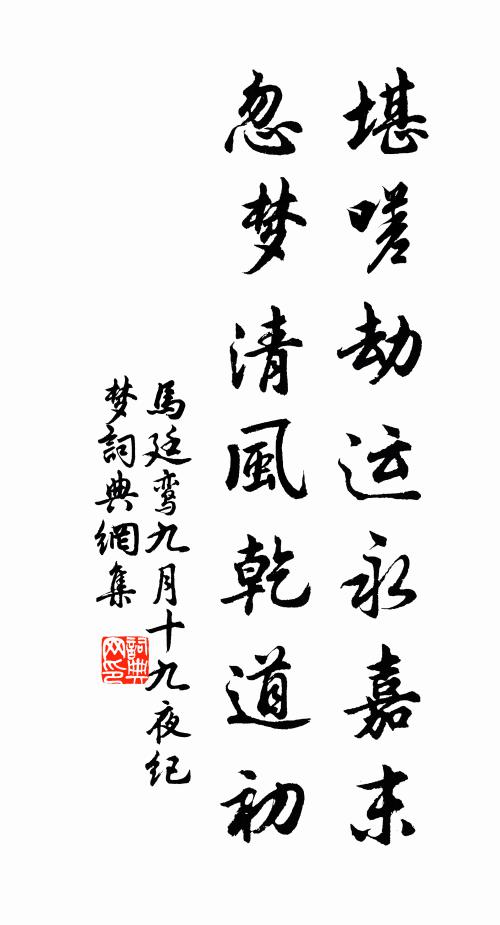 堪嗟劫运永嘉末
忽梦清風乾道初
馬廷鸾九月十九夜纪
梦詞典網集
詞典網印